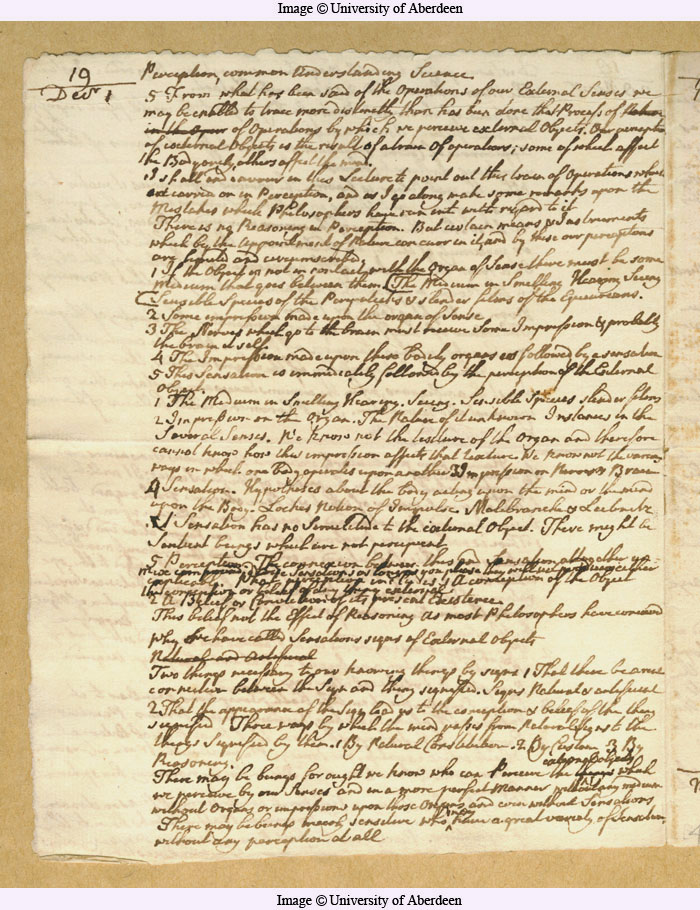 Image © University of Aberdeen
19
Decr 1
Perception, common Understanding Science
5 From what has been said of the Operations of our External Senses we
may be enabled to trace more distinctly than has been done that Process of Nature
in the Oper of Operations by which we perceive external Objects. Our perception
of external Objects is the result of a train of operations; some of which affect
the Body only, others affect the mind.
I shall endeavour in this Lecture to point out this train of Operations which
are carried on in Perception, and as I go along make some remarks upon the
Mistakes which Philosophers have run into with regard to it
There is no Reasoning in Perception. But certain means & Instruments
which by the Appointment of Nature concur in it, and by these our perceptions
are limited and circumscribed.
1 If the Object is not in contact with the Organ of Sense there must be some
Medium that goes between them. The Medium in Smelling Hearing Seeing
Sensible Species of the Peripateticks & slender films of the Epicureans.
2 Some impression made upon the organ of Sense
3 The Nerves which go to the brain must receive Some Impression & probably
the brain it self
4 The Impression made upon these bodily organs is followed by a sensation
5 This Sensation is immediately followed by the perception of the External
Object.
1 The Medium in Smelling Hearing. Seeing. Sensible Species slender films
2 Impression on the Organ. The Nature of it unknown Instances in the
Several Senses. We know not the texture of the Organ and therefore
cannot know how this impression affects that texture. We know not the various
ways in which one Body operates upon another 3 Impression on Nerves & Brain
4 Sensation. Hypotheses about the body acting upon the mind or the mind
upon the Body. Lockes Notion of Impulse Malebranche & Leibnitz
1 Sensation has no Similitude to the external Object. There might be
Sentient beings which are not percipient
5 Perception. The connexion between this and Sensation altogether un
explicable. What perception implies 1 A conception of the Object
the conception or belief of any thing external
2 A Belief or Conviction of its present Existence.
This belief not the Effect of Reasoning as most Philosophers have conceived
Why We have called Sensations signs of External Objects
Natural and Artificial
Two things necessary to our knowing things by signs 1 That there be a real
connection between the Sign and thing signified. Signs Natural & artificial
2 That the appearance of the Sign lead us to the conception & belief of the thing
signified Three ways by which the mind passes from Natural Signs to the
things Signified by them. 1 By Natural Constitution. 2 By Custom 3 By
Reasoning.
external objects
There may be beings for ought we know who can Perceive the things which
we perceive by our Senses and in a more perfect Manner without any medium
without Organs or impressions upon those Organs and even without Sensations
There may be beings meerly sensitive who may have a great variety of Sensations
without any perception at all
Image © University of Aberdeen